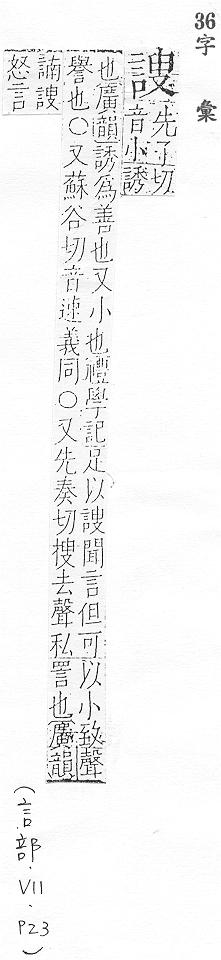 36
字彙
謏先了切
音小誘
也廣韻誘爲善也又小也禮學記足以謏聞言但可以小致聲
譽也○又蘇谷切音速義同○又先奏切㮴去聲私詈也廣韻
諵謏
怒言
(言部.VII.P23)